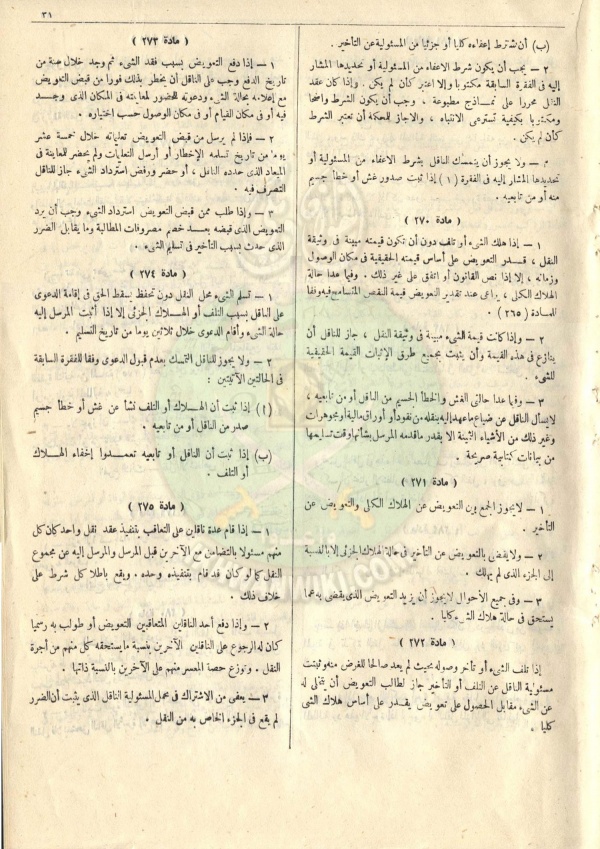 ٣١
(ب) أن يشترط إعفاءه كليا أو جزئيا من المسئولية عن التأخير .
٢ — يجب أن يكون شرط الاعفاء من المسئولية أو تحديدها المشار
إليه فى الفقرة السابقة مكتوبا وإلا اعتبر كأن لم يكن . وإذا كان عقد
النقل محررا على نماذج مطبوعة ، وجب أن يكون الشرط واضحا
ومكتوبا بكيفية تسترعى الانتباه ، والا جاز للمحكمة أن تعتبر الشرط
كأن لم يكن .
م — ولا يجوز أن يتمسك الناقل بشرط الاعفاء من المسئولية أو
تحديدها المشار إليه فى الفقرة (١) إذا ثبت صدور غش أو خطأ جسيم
منه أو من تابعيه .
( مادة ٢٧٠ )
١ — إذا هلك الشىء أو تلف دون أن تكون قيمته مبينة فى وثيقة
النقل ، قدر التعويض على أساس قيمته الحقيقية فى مكان الوصول
وزمانه ، إلا إذا نص القانون أو اتفق على غير ذلك . وفيما عدا حالة
الهلاك الكلى ، يراعى عند تقدير التعويض قيمة النقص المتسامح فيه وفقا
للمادة (٢٦٥)
٢ — وإذا كانت قيمة الشىء مبينة فى وثيقة النقل ، جاز للناقل أن
ينازع فى هذه القيمة وأن يثبت بجميع طرق الإثبات القيمة الحقيقية
للشىء .
٣ — وفيما عدا حالتى الغش والخطأ الجسيم من الناقل أو من تابعيه ،
لا يسأل الناقل عن ضياع ما عهد إليه بنقله من نقود أو أوراق مالية أو مجوهرات
وغير ذلك من الأشياء الثمينة الا بقدر ما قدمه المرسل بشأنها وقت تسليمها
من بيانات كتابية صريحة .
( مادة ٢٧١ )
١ — لا يجوز الجمع بين التعويض عن الهلاك الكلى والتعويض عن
التأخير .
٢ — ولا يقضى بالتعويض عن التأخير فى حالة الهلاك الجزئى إلا بالنسبة
إلى الجزء الذى لم يهلك .
٣ — وفى جميع الأحوال لا يجوز أن يزيد التعويض الذى يقضى به عما
يستحق فى حالة هلاك الشىء كليا .
( مادة ٢٧٢ )
إذا تلف الشىء أو تأخر وصوله بحيث لم يعد صالحا للغرض منه وثبتت
مسئولية الناقل عن التلف أو التأخير جاز لطالب التعويض أن يتخلى له
عن الشىء مقابل الحصول على تعويض يقدر على أساس هلاك الشىء
كليا .
( مادة ٢٧٣ )
١ — إذا دفع التعويض بسبب فقد الشىء ثم وجد خلال سنة من
تاريخ الدفع وجب على الناقل أن يخطر بذلك فورا من قبض التعويض
مع إعلامه بحالة الشىء ودعوته للحضور لمعاينته فى المكان الذى وجد
فيه أو فى مكان القيام أو فى مكان الوصول حسب اختياره .
٢ — فإذا لم يرسل من قبض التعويض تعليماته خلال خمسة عشر
يوما من تاريخ تسلمه الإخطار أو أرسل التعليمات ولم يحضر للمعاينة فى
الميعاد الذى حدده الناقل ، أو حضر ورفض استرداد الشىء جاز للناقل
التصرف فيه .
٣ — وإذا طلب ممن قبض التعويض استرداد الشىء وجب أن يرد
التعويض الذى قبضه بعد خصم مصروفات المطالبة وما يقابل الضرر
الذى حدث بسبب التأخير فى تسليم الشىء .
( مادة ٢٧٤ )
١ — تسلم الشىء محل النقل دون تحفظ يسقط الحق فى إقامة الدعوى
على الناقل بسبب التلف أو الهلاك الجزئى إلا إذا أثبت المرسل إليه
حالة الشىء وأقام الدعوى خلال ثلاثين يوما من تاريخ التسليم .
٢ — ولا يجوز للناقل التمسك بعدم قبول الدعوى وفقا للفقرة السابقة
فى الحالتين الآتيتين :
(١) إذا ثبت أن الهلاك أو التلف نشأ عن غش أو خطأ جسيم
صدر من الناقل أو من تابعيه .
(ب) إذا ثبت أن الناقل أو تابعيه تعمدوا إخفاء الهلاك
أو التلف .
( مادة ٢٧٥ )
١ — إذا قام عدة ناقلين على التعاقب بتنفيذ عقد نقل واحد كان كل
منهم مسئولا بالتضامن مع الآخرين قبل المرسل والمرسل إليه عن مجموع
النقل كما لو كان قد قام بتنفيذه وحده . ويقع باطلا كل شرط على
خلاف ذلك .
٢ — وإذا دفع أحد الناقلين المتعاقبين التعويض أو طولب به رسميا
كان له الرجوع على الناقلين الآخرين بنسبة ما يستحقه كل منهم من أجرة
النقل . وتوزع حصة المعسر منهم على الآخرين بالنسبة ذاتها .
٣ — يعفى من الاشتراك فى تحمل المسئولية الناقل الذى يثبت أن الضرر
لم يقع فى الجزء الخاص به من النقل .